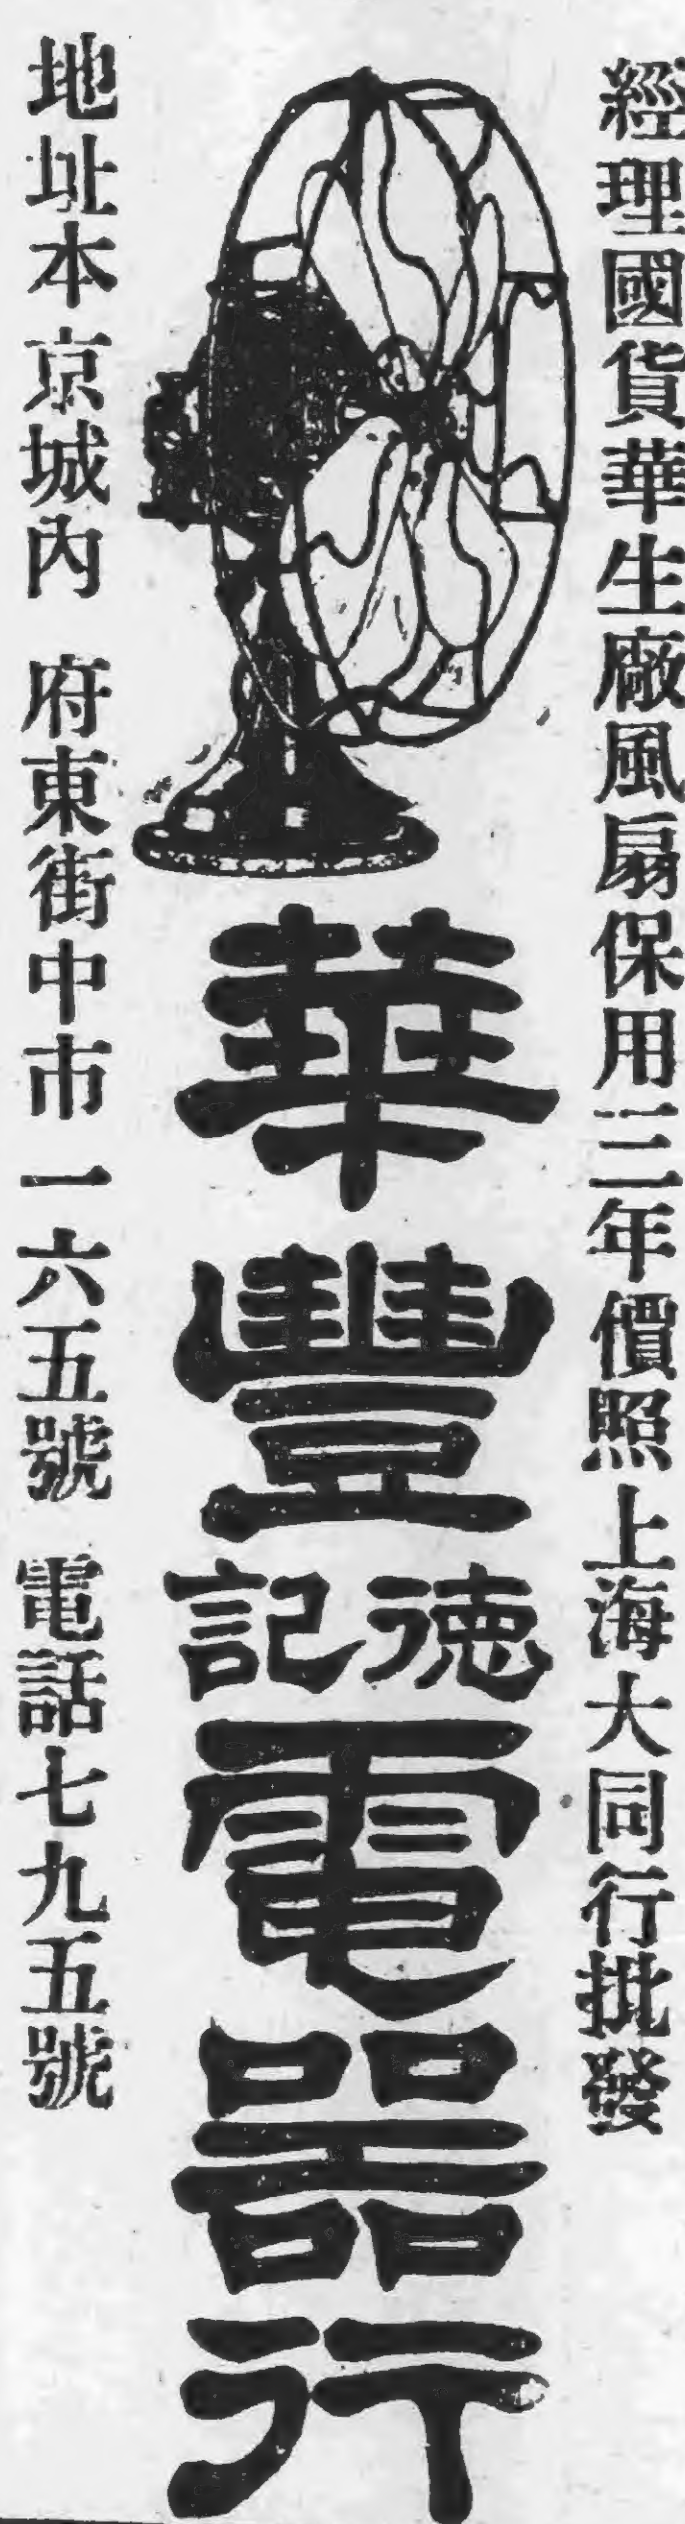 經理國貨華生廠風扇保用三年價照上海大同行批發
華豐
德記
電器行
地址本京城內 府東街中市一六五號 電話七九五號